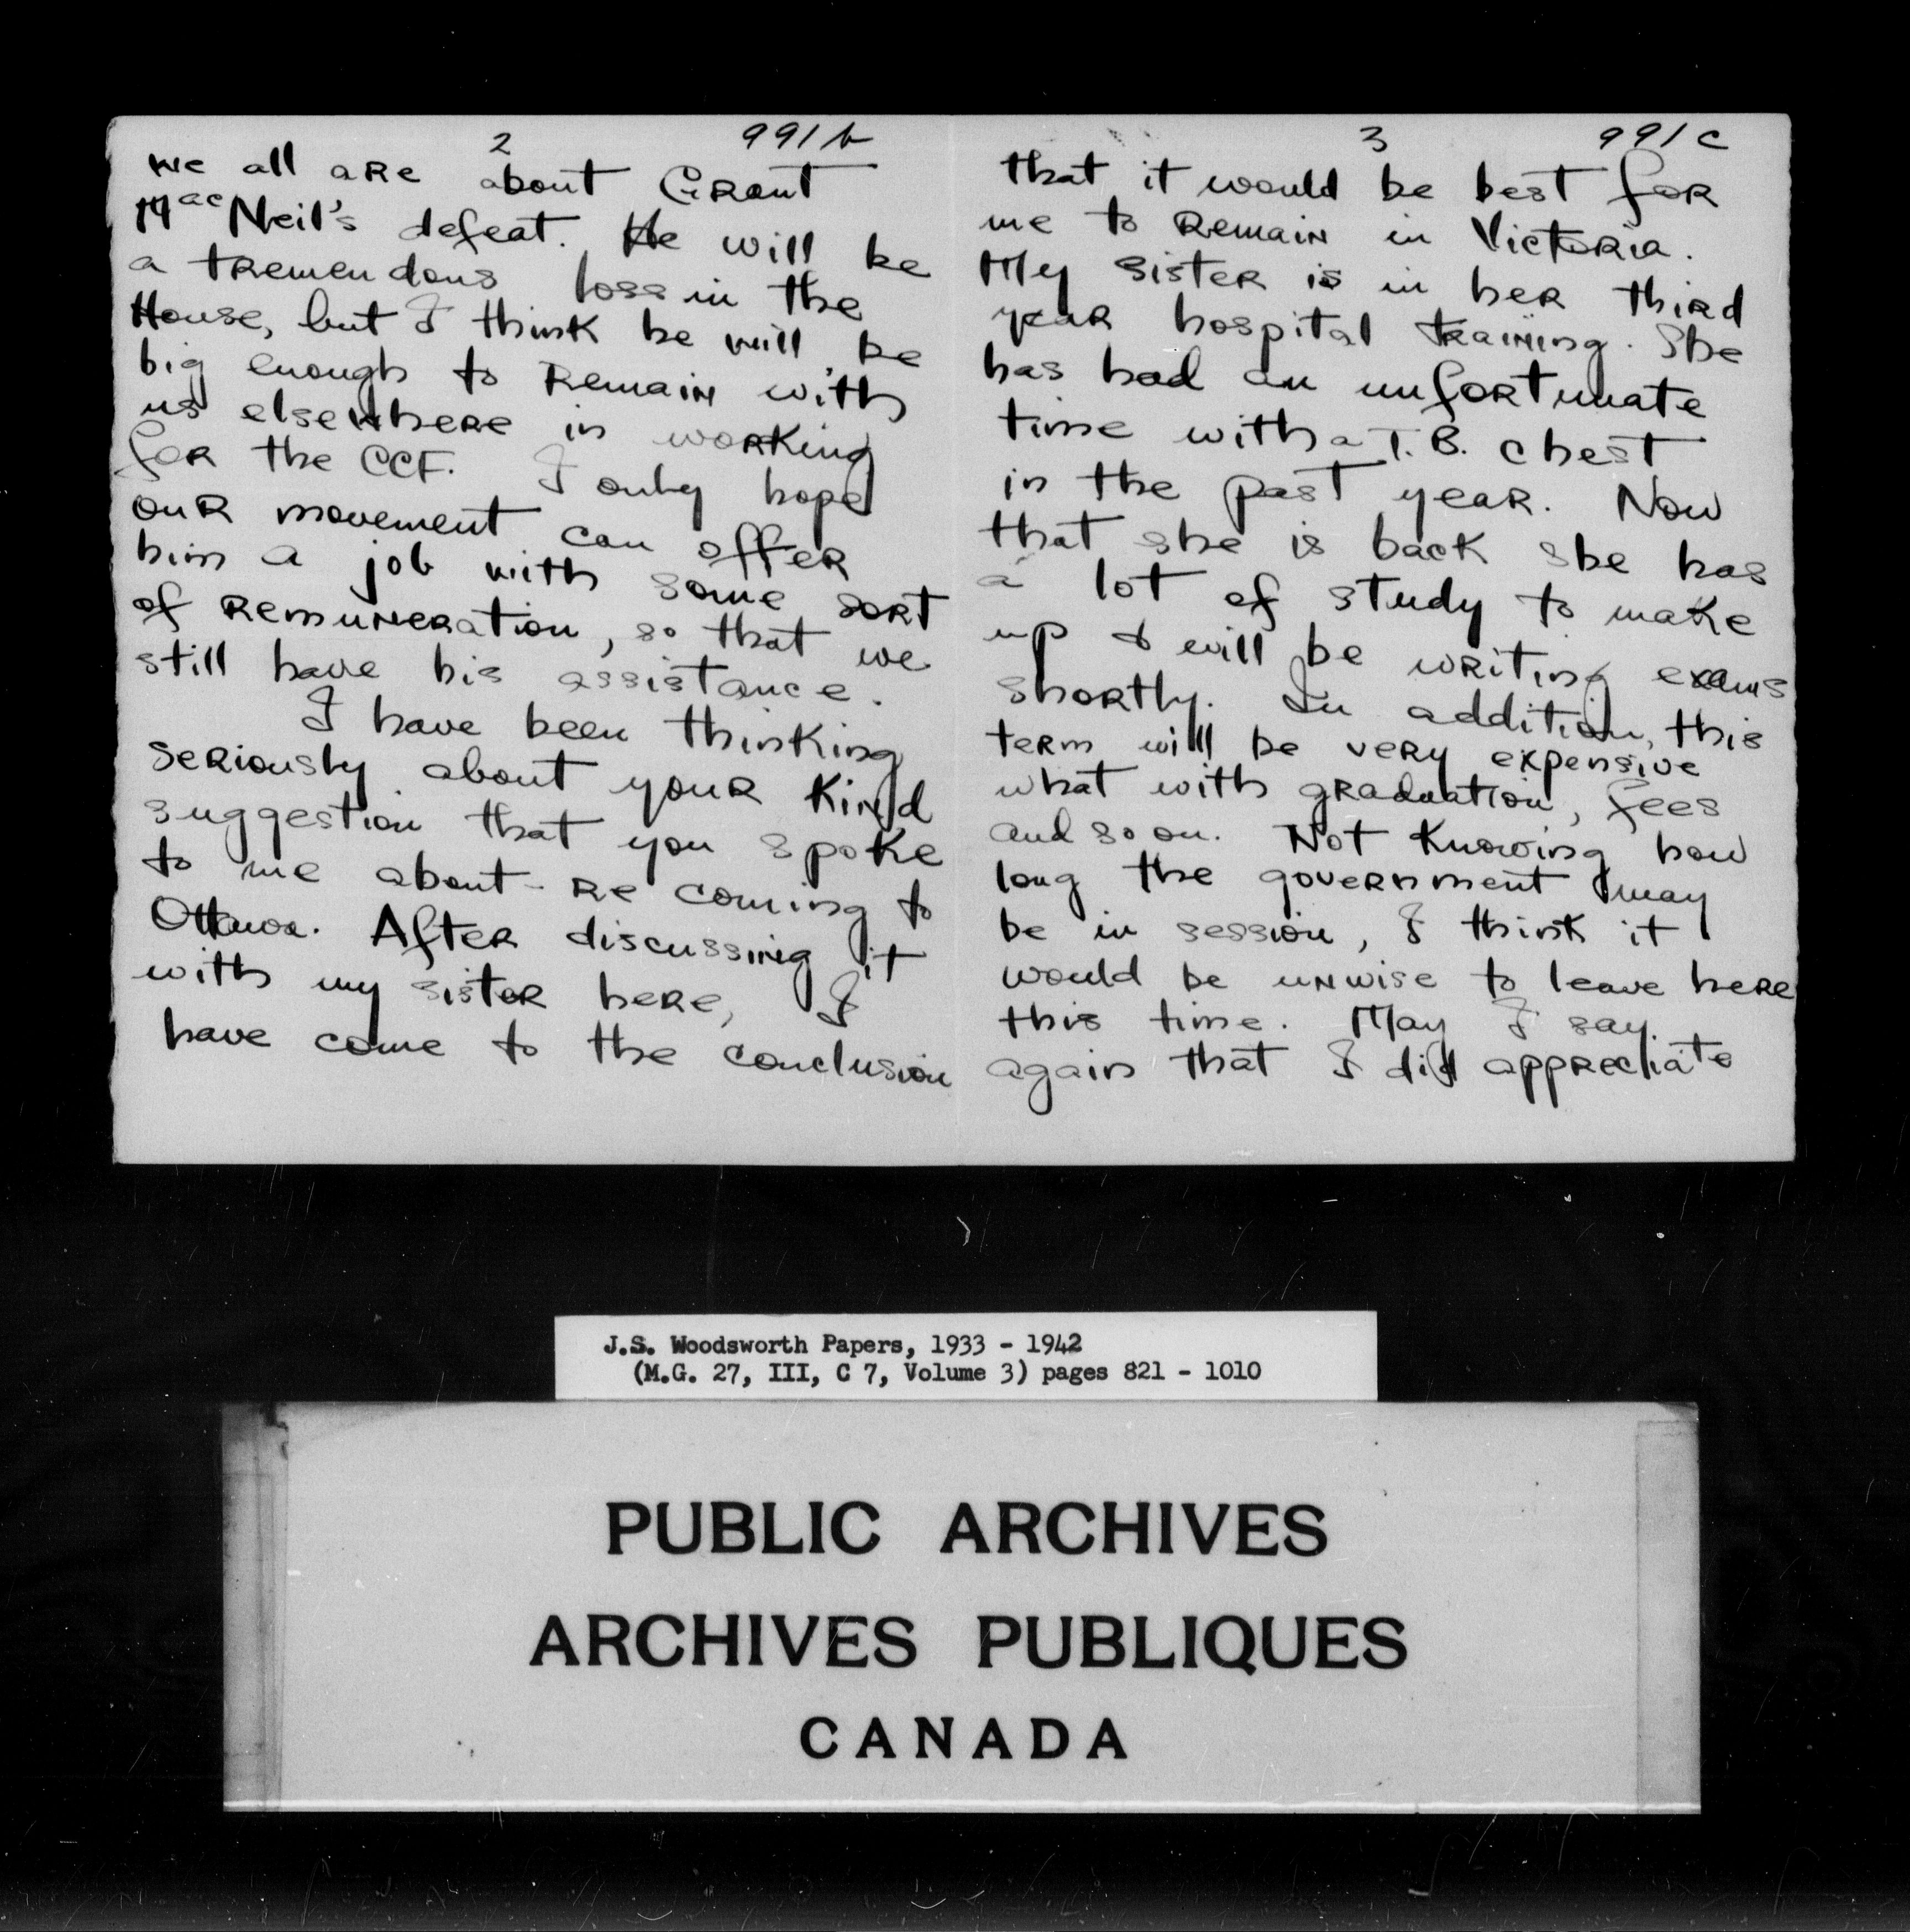 2 991b
we all are about Grant
MacNeil's defeat. He will be
a tremendous loss in the
House, but I think he will be
big enough to remain with
us elsewhere in working
for the CCF. I only hope
our movement can offer
him a job with some sort
of remuneration, so that we
still have his assistance.
I have been thinking
seriously about your kind
suggestion that you spoke
to me about - re coming to
Ottawa. After discussing it
with my sister here, I
have come to the conclusion
3 991c
that it would be best for
me to remain in Victoria.
My sister is in her third
year hospital training. She
has had an unfortunate
time with a T.B. chest
in the past year. Now
that she is back she has
a lot of study to make
up & will be writing exams
shortly. In addition, this
term will be very expensive
what with graduation, fees
and so on. Not knowing how
long the government may
be in session, I think it
would be unwise to leave here
this time. May I say
again that I did appreciate
J.S. Woodsworth Papers, 1933 - 1942
(M.G. 27, III, C 7, Volume 3) pages 821 - 1010
PUBLIC ARCHIVES
ARCHIVES PUBLIQUES
CANADA